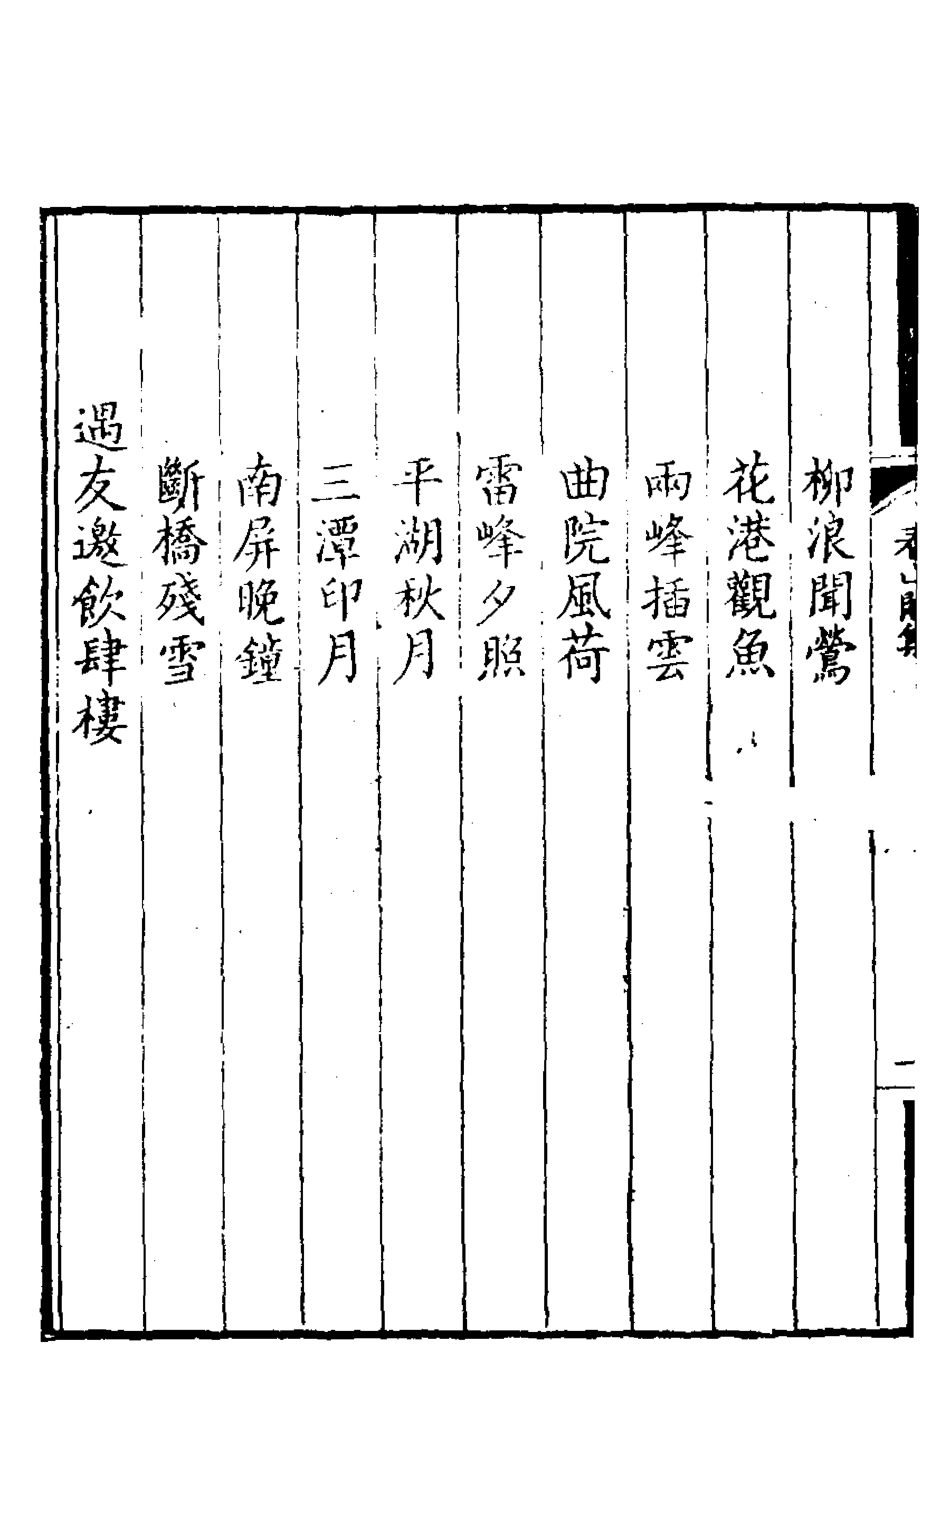 柳浪聞鶯
花港觀魚
兩峰插雲
曲院風荷
雷峰夕照
平湖秋月
三潭印月
南屏晚鐘
斷橋殘雪
遇友邀飲肆樓